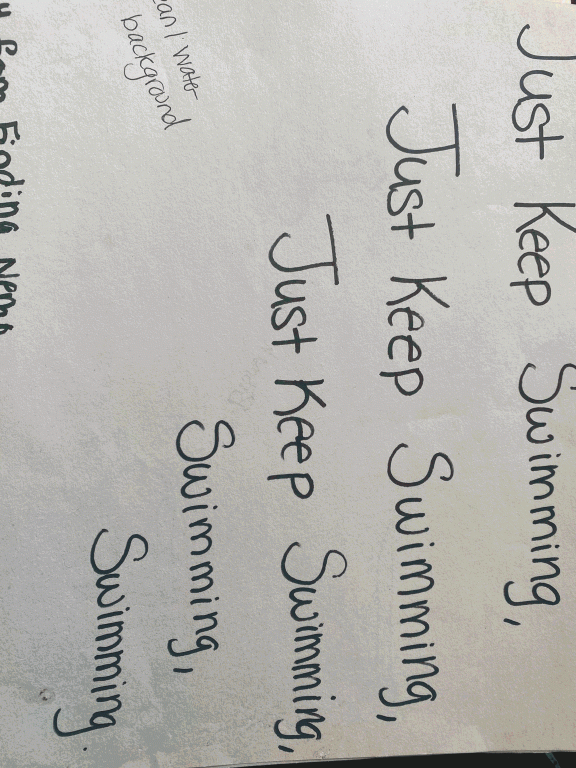 Just Keep Swimming,
Just Keep Swimming,
Just Keep Swimming,
Swimming,
Swimming.
water
background
from Finding Nemo